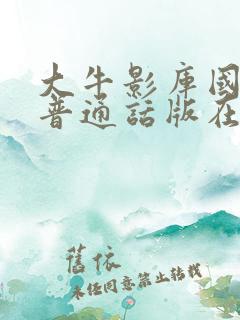 大牛影库國
普通話版在
舊依
未经同意禁止转载